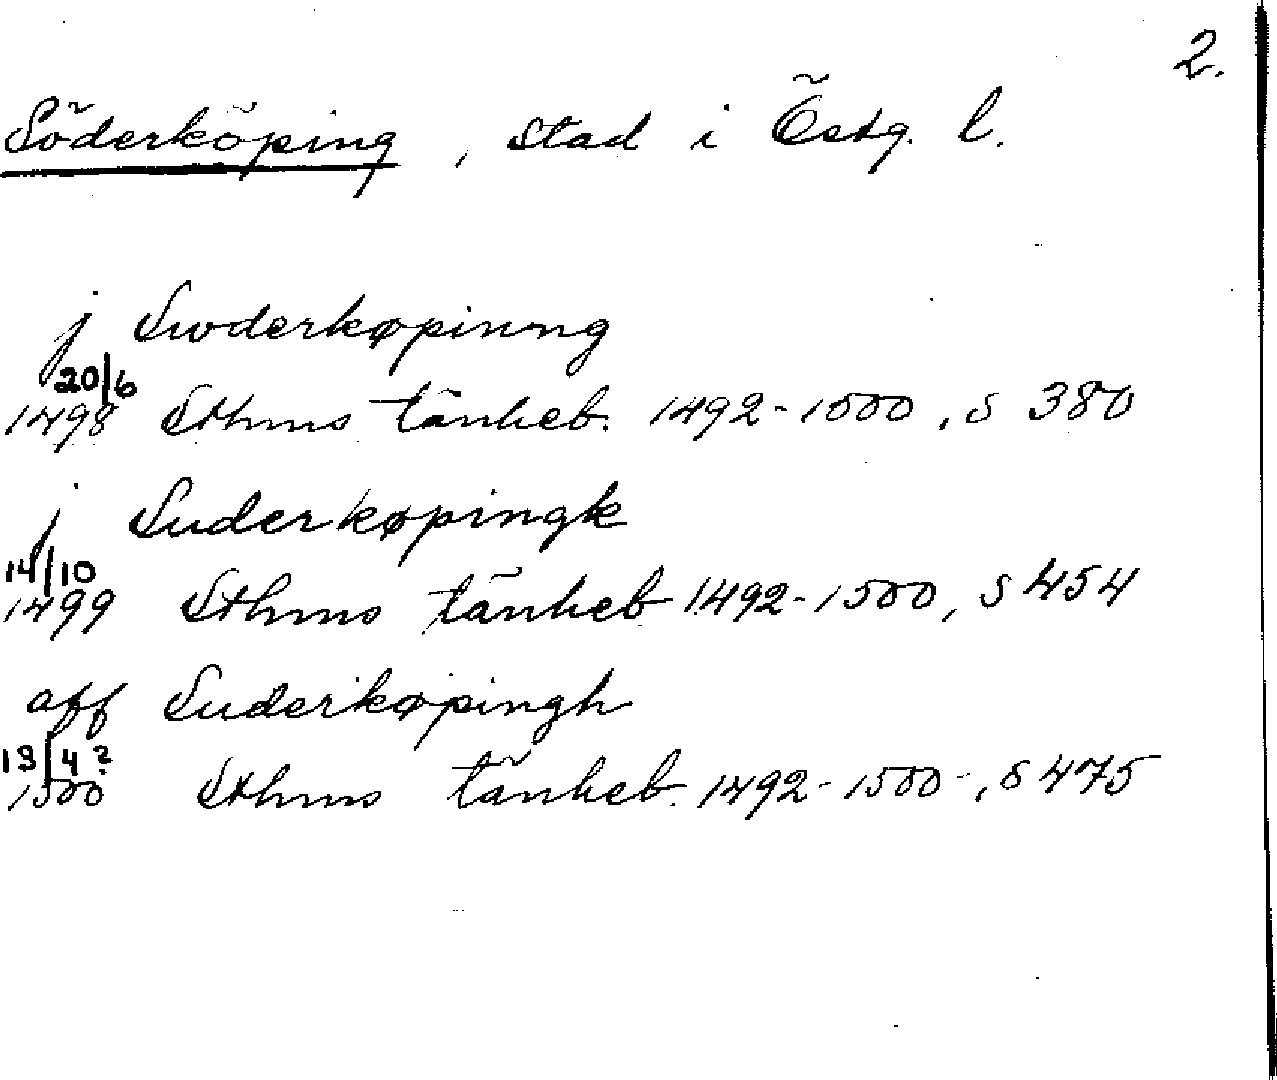 2.
Söderköping, stad i Östg. l.
j Swderkøpinng
20/6
1498 Sthms tänkeb. 1492-1500, s 380
j Suderkøpingk
14/10
1499 Sthms tänkeb 1492-1500, s 454
aff Suderkøpingh
13/4?
1500 Sthms tänkeb. 1492-1500-, s 475